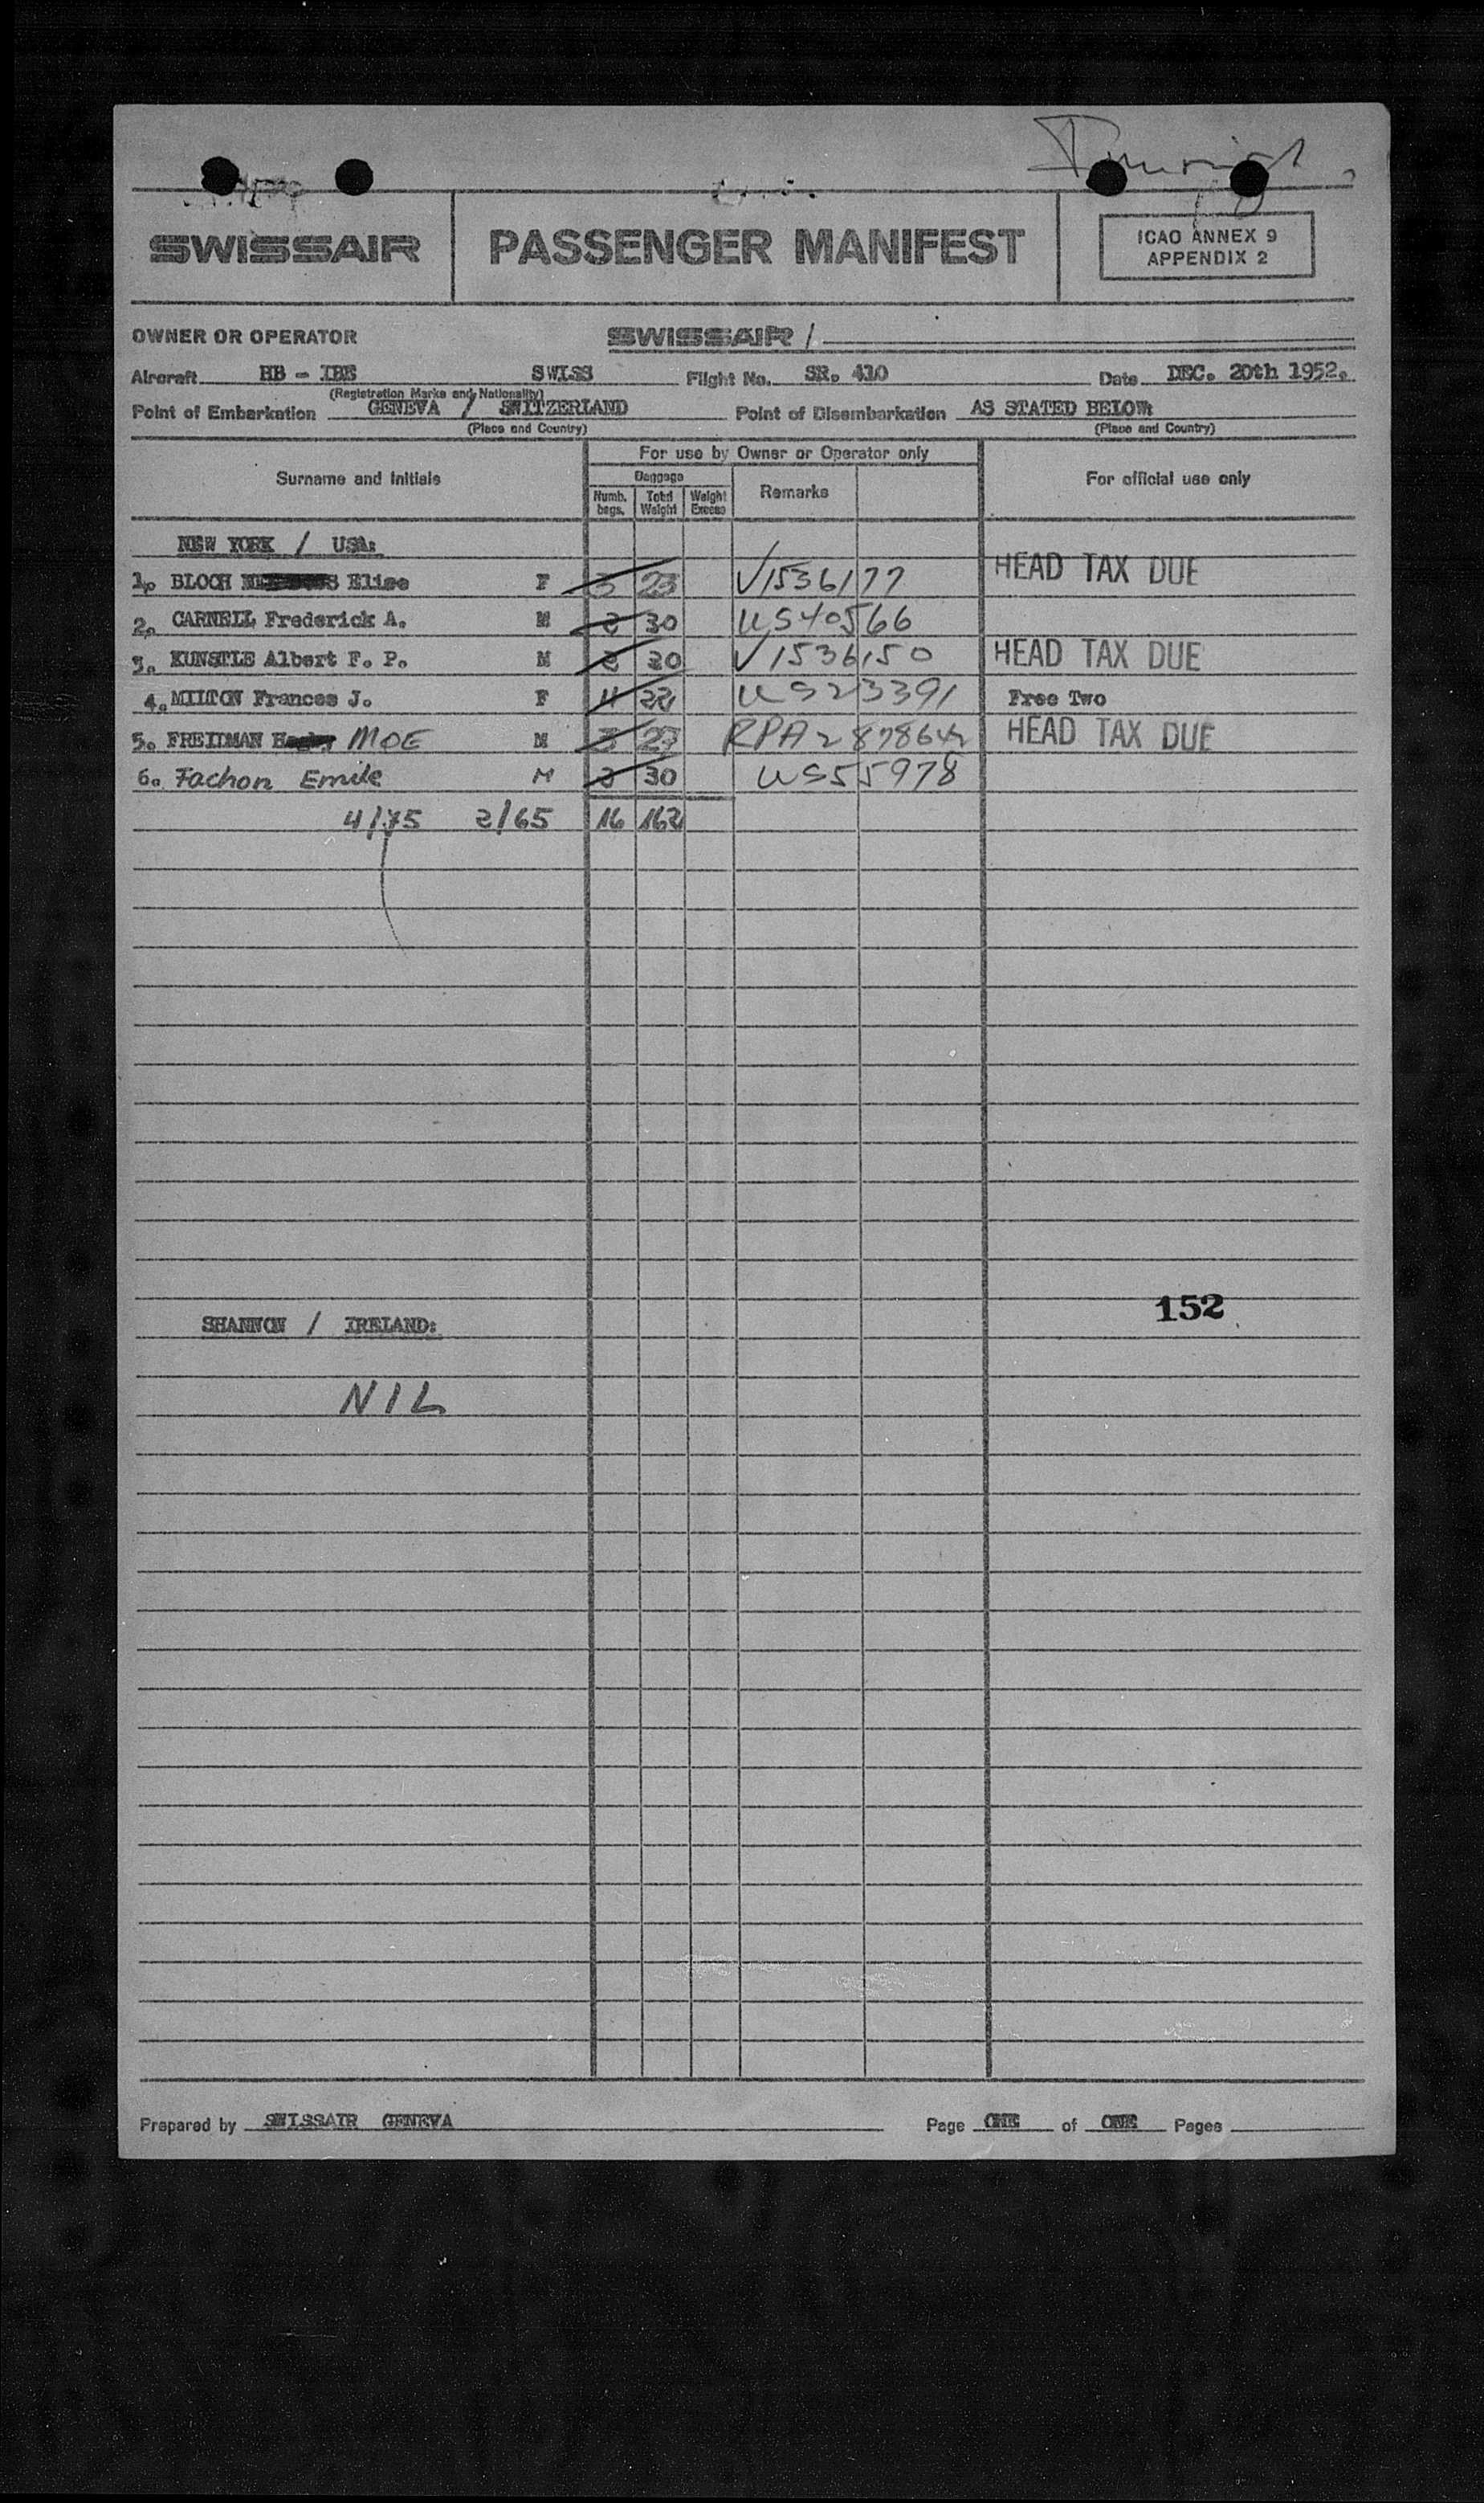 SWISSAIR
PASSENGER MANIFEST
ICAO ANNEX 9
APPENDIX 2
OWNER OR OPERATOR SWISSAIR /
Aircraft HB - IBE SWISS Flight No. SR. 410 Date DEC. 20th 1952.
(Registration Marks and Nationality)
Point of Embarkation GENEVA / SWITZERLAND Point of Disembarkation AS STATED BELOW:
(Place and Country) (Place and Country)
For use by Owner or Operator only
Surname and Initials Baggage Remarks For official use only
Numb. bags. Total Weight Weight Excess
NEW YORK / USA:
1. BLOCH Elise F 3 23 V1536177 HEAD TAX DUE
2. CARNELL Frederick A. M 2 30 US40566
3. KUNSTLE Albert F. P. M 2 20 V1536150 HEAD TAX DUE
4. MILTON Frances J. F 4 22 US23391 Free Two
5. FREIDMAN MOE M 3 27 RPA2 HEAD TAX DUE
6. Fachon Emile M 2 30 US55978
4/75 2/65 16 162
152
SHANNON / IRELAND:
NIL
Prepared by SWISSAIR GENEVA Page ONE of ONE Pages